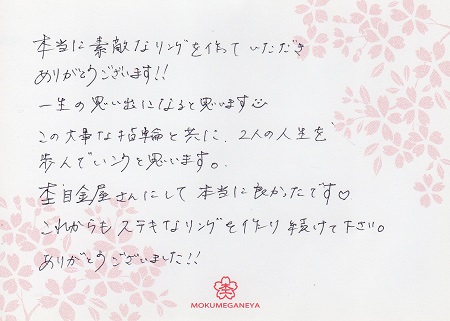 本当に素敵なリングを作っていただき
ありがとうございます!!
一生の思い出になると思います☺
この大事な指輪と共に、2人の人生を
歩んでいこうと思います。
杢目金屋さんにして本当に良かったです♡
これからもステキなリングを作り続けて下さい。
ありがとうございました!!
杢
MOKUMEGANEYA